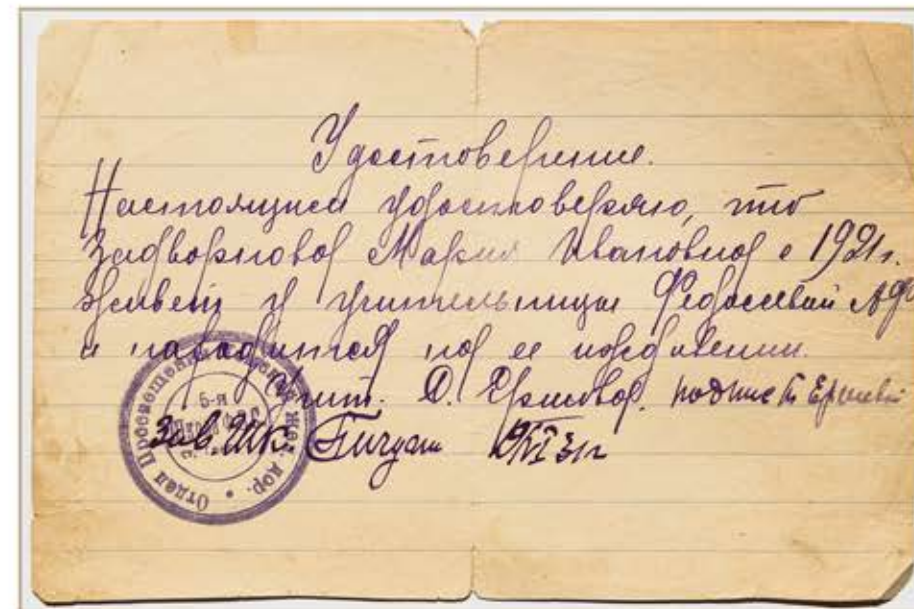 Удостоверение.
Настоящим удостоверяю, что
Задворнова Мария Ивановна с 1921г.
живет у учительницы Федосеевой
и находится на ее иждивении.
Учит. Д. Ершова. подпись Ершовой
Зав. Шк. Бичули VI 31г
Отдел Просвещения жел. дор.
5-я